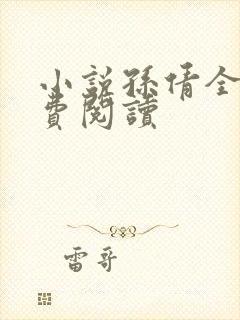 小說孫倩全
費閱讀
雷哥